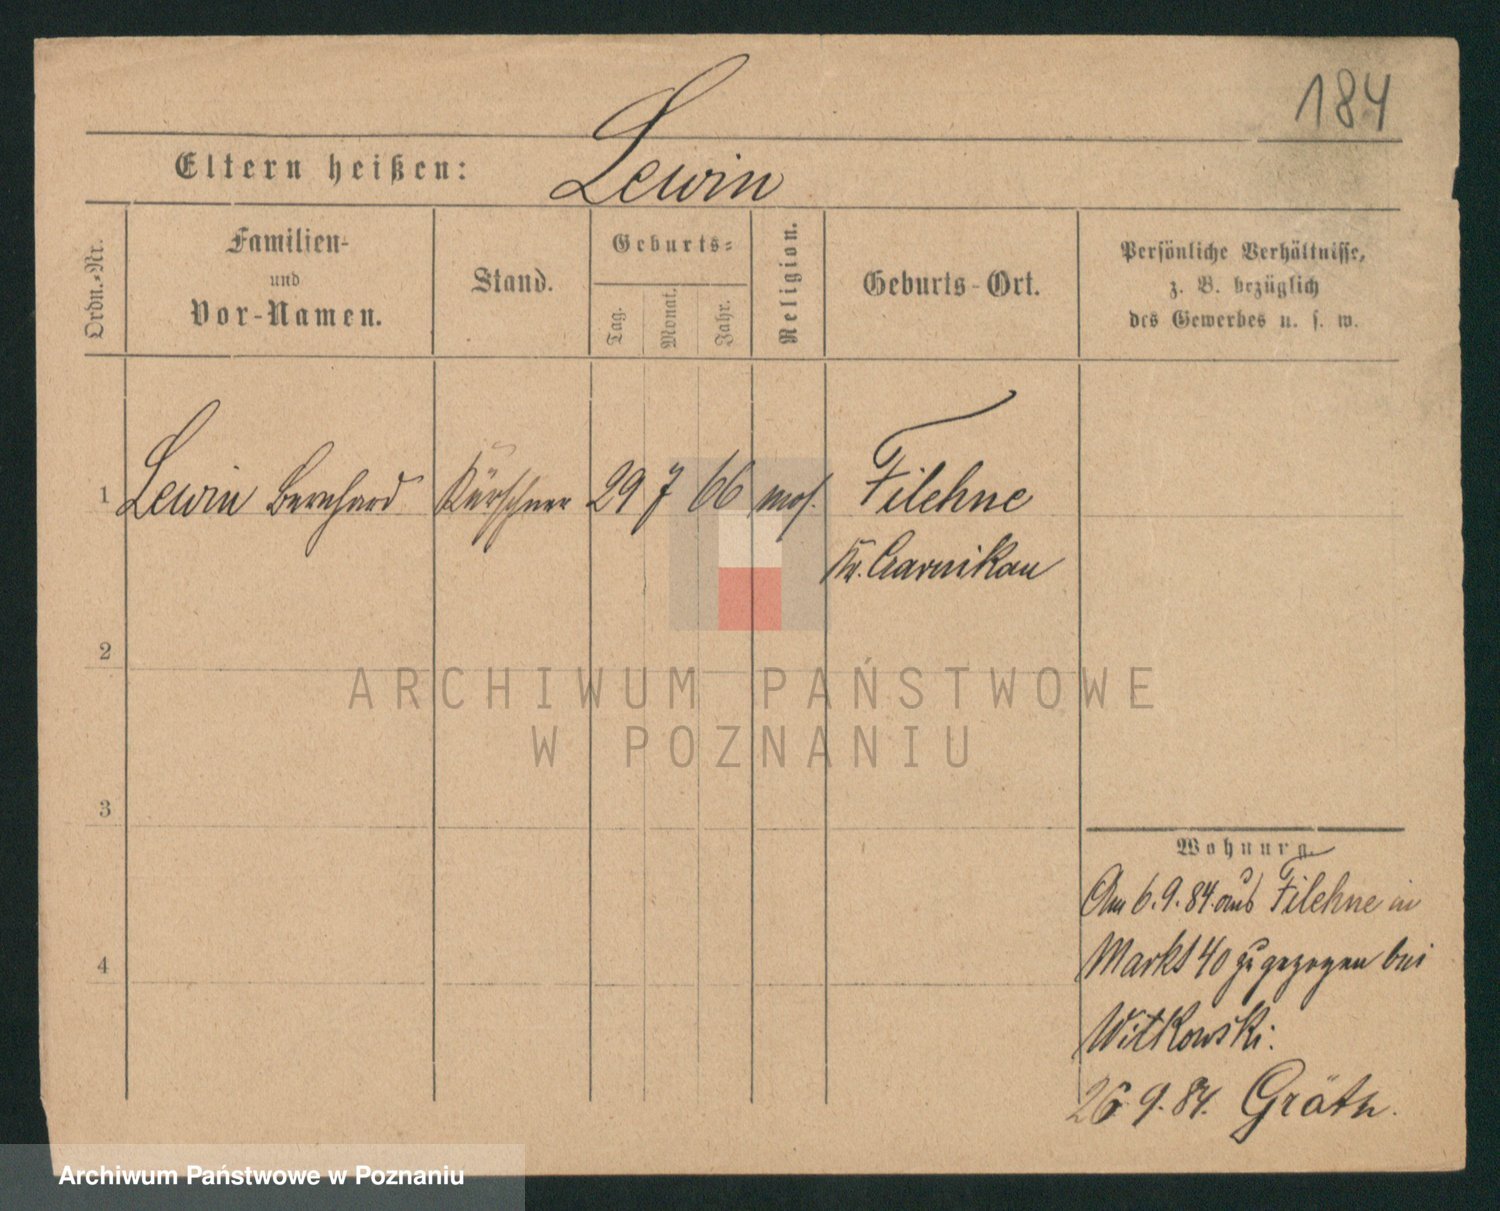 184
Eltern heißen: Lewin
Ordn.-Nr.
Familien-
und
Vor-Namen.
Stand.
Geburts-
Tag.
Monat.
Jahr.
Religion.
Geburts-Ort.
Persönliche Verhältnisse,
z. B. bezüglich
des Gewerbes u. s. w.
1 Lewin Bernhard Kürschner 29 7 66 mos. Filehne
Kr. Czarnikau
2
ARCHIWUM PAŃSTWOWE
W POZNANIU
3
Wohnung.
Am 6.9.84. aus Filehne in
4
Markt 40 zugezogen bei
Witkowski.
26 9. 84. Grätz.
Archiwum Państwowe w Poznaniu